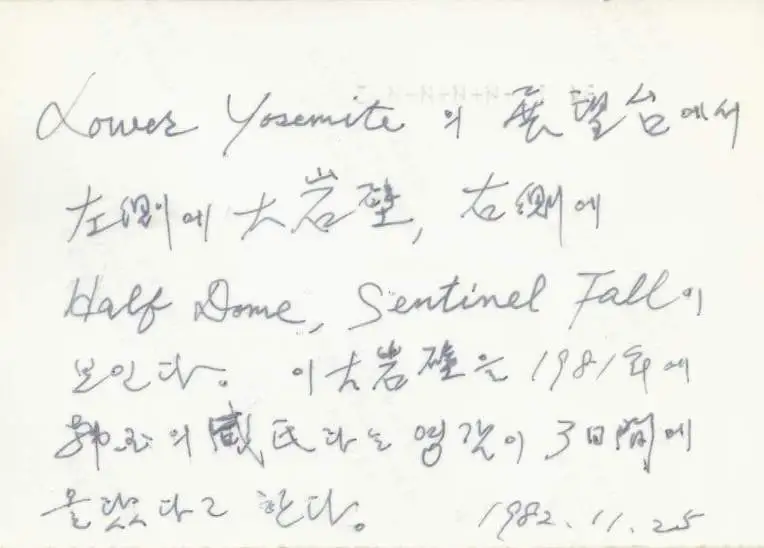 Lower Yosemite 의 展望台에서
左側에 大岩壁, 右側에
Half Dome, Sentinel Fall이
보인다. 이 大岩壁을 1981年에
의 咸氏라는 영감이 3日間에
올랐다고 한다. 1982.11.25